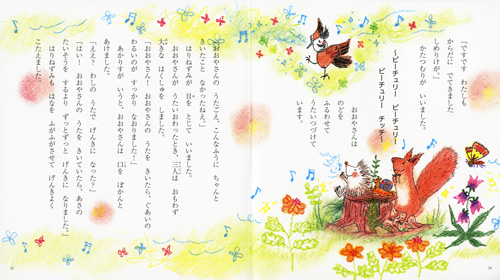 「ですです わたしも
からだに でてきました
しめりけが。」
かたつむりが いいました。
〜ピーチュリー ピーチュリー
ピーチュリー チッチ〜
おおやさんは
のどを
ふるわせて
うたいつづけて
います。
おおやさんの うたごえ、こんなふうに ちゃんと
きいたこと なかったねえ。」
はりねずみが 目を とじて いいました。
おおやさんが うたいおわったとき、三人は おもわず
大きな はくしゅを しました。
「おおやさん! おおやさんの うたを きいたら、ぐあいの
わるいのが すっかり なおりました!」
あかりすが いうと、おおやさんは 口を ぽかんと
あけました。
「ええ? わしの うたで げんきに なった?」
「はい! おおやさんの うたを きいていたら、あさの
たいそうを するより ずっとずっと げんきに なりました。」
はりねずみも はなを ふがふがさせて げんきよく
こたえました。